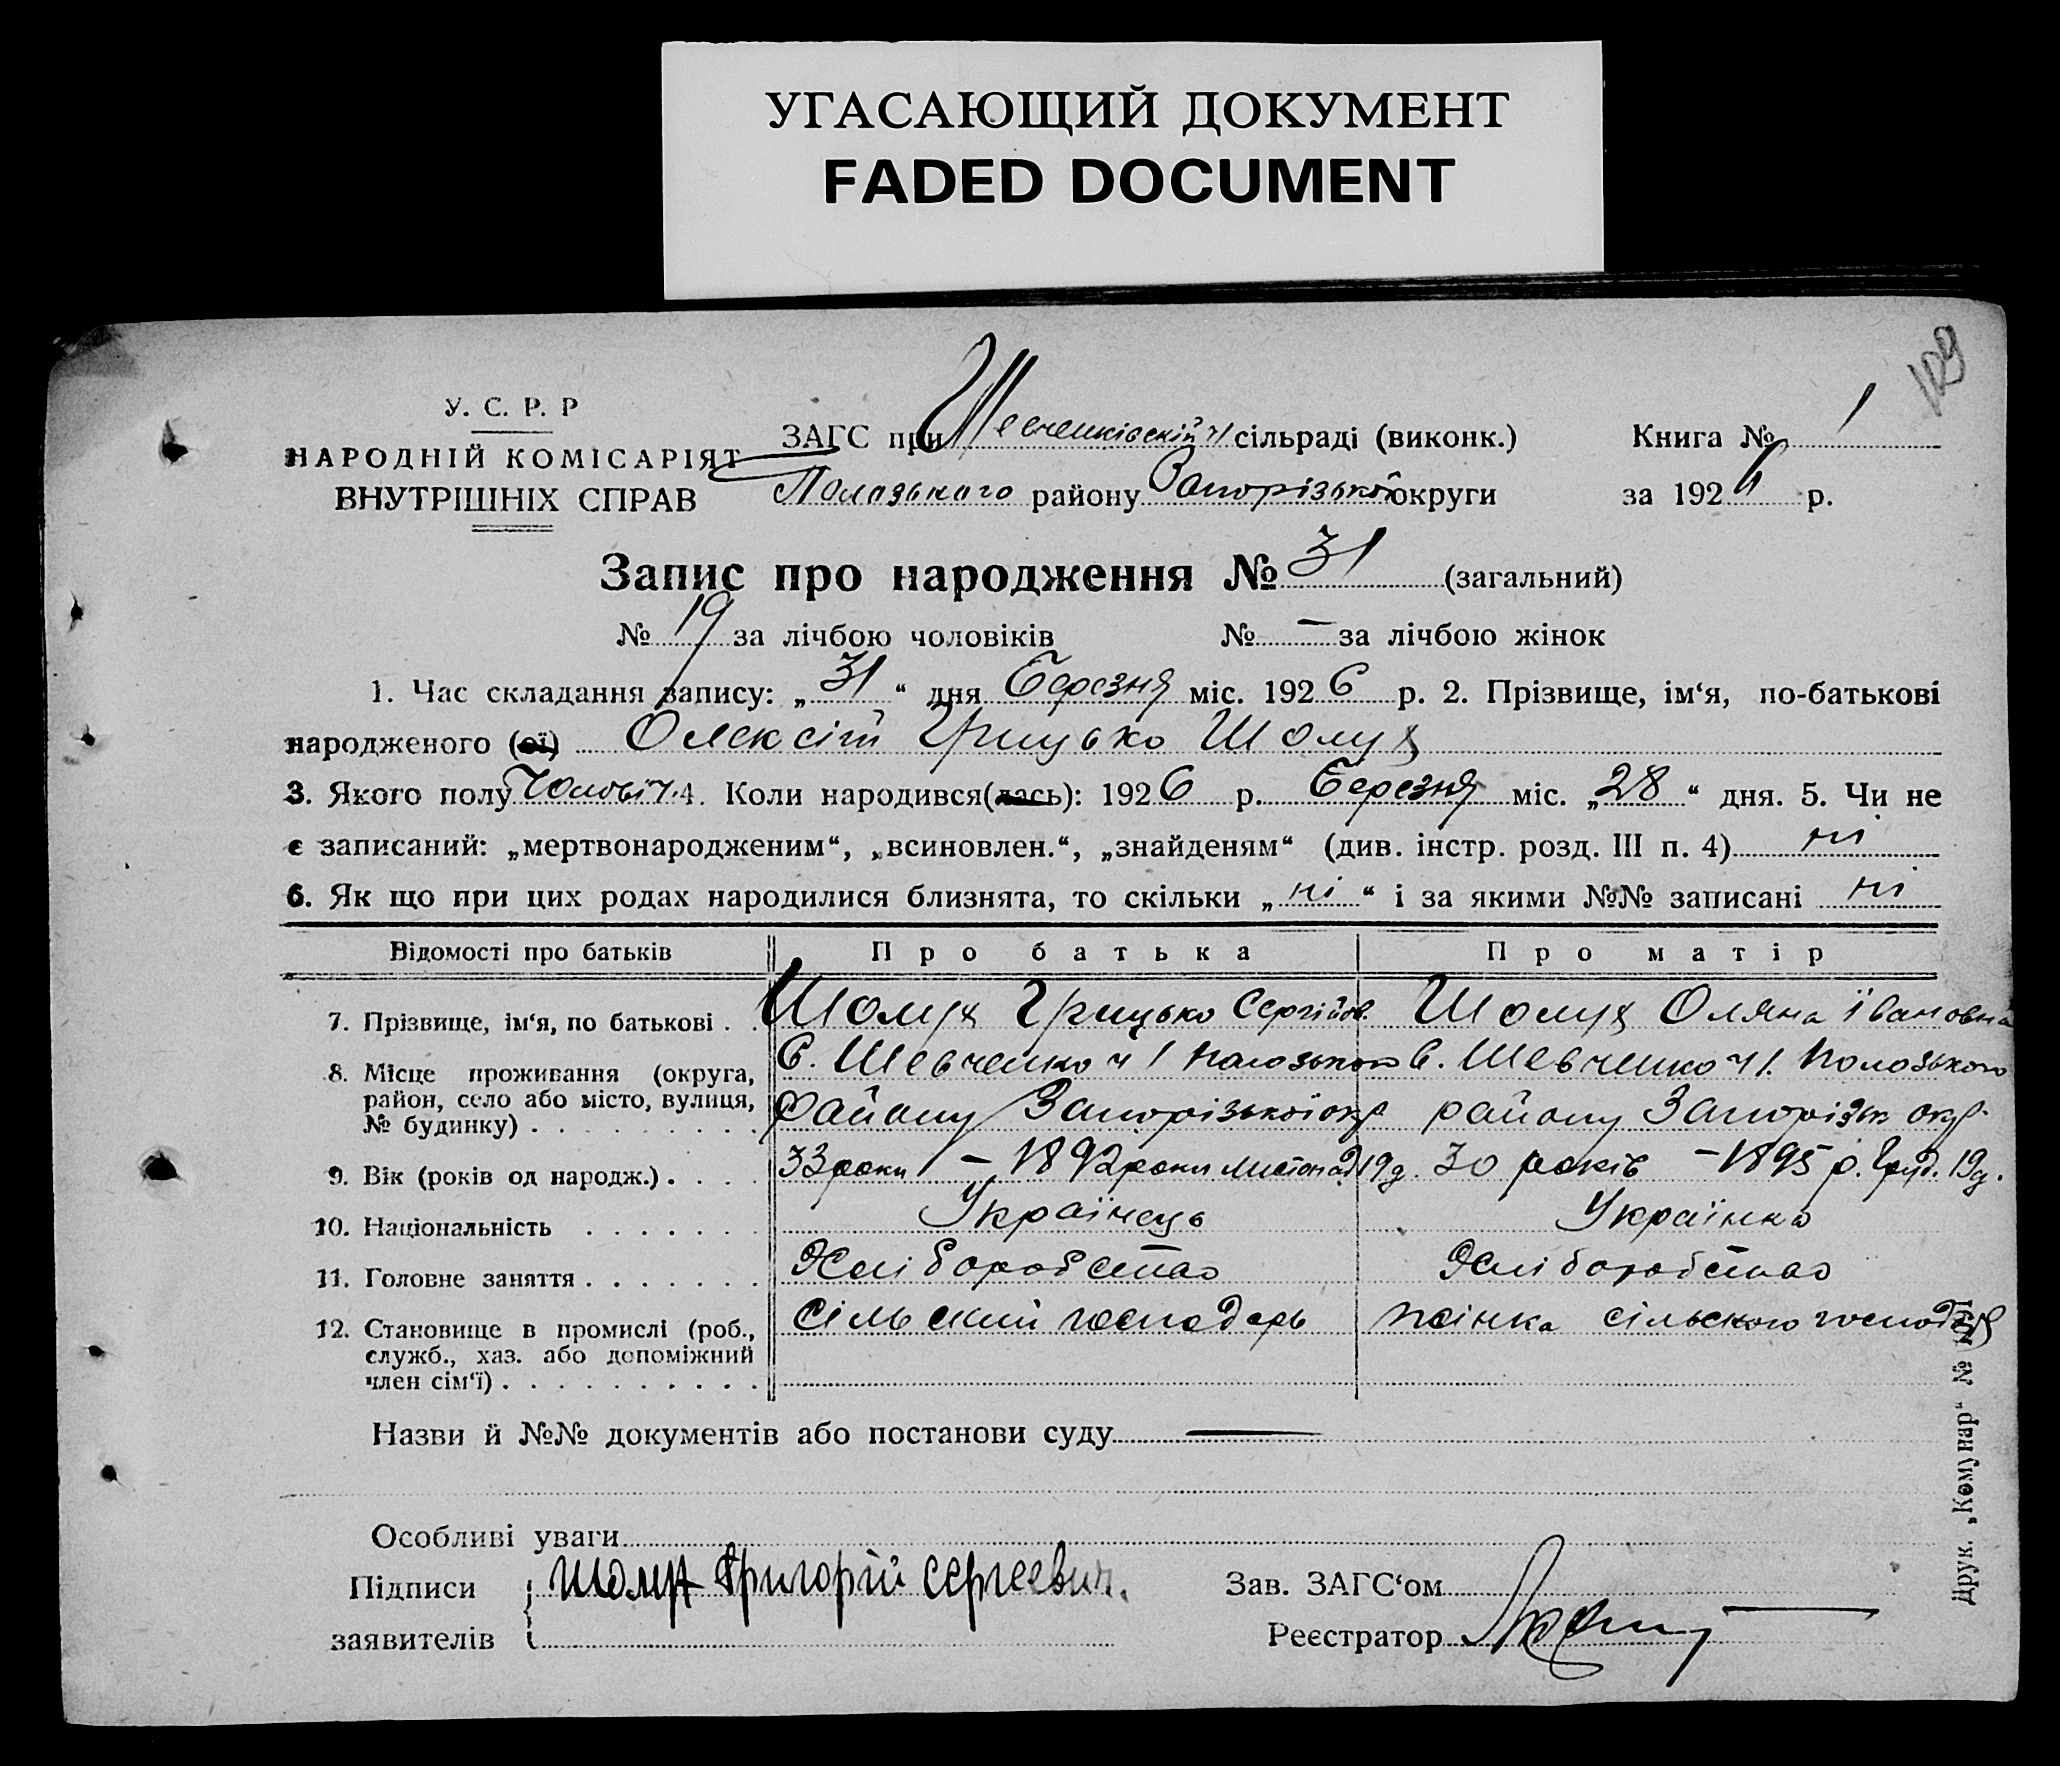 УГАСАЮЩИЙ ДОКУМЕНТ
FADED DOCUMENT
109
У. С. Р. Р
НАРОДНІЙ КОМІСАРІЯТ
ВНУТРІШНІХ СПРАВ
ЗАГС при Шевченківській ч 1 сільраді (виконк.)
Полозького району Запорізької округи
Книга № 1
за 1926 р.
Запис про народження № 31 (загальний)
№ 19 за лічбою чоловіків № — за лічбою жінок
1. Час складання запису: „31“ дня Березня міс. 1926 р. 2. Прізвище, ім‘я, по-батькові
народженого (ої) Олексій Грицько Шолуд
3. Якого полу Чоловіч. 4. Коли народився(лась): 1926 р. Березня міс. „28“ дня. 5. Чи не
є записаний: „мертвонародженим“, „всиновлен.“, „знайденям“ (див. інстр. розд. III п. 4) ні
6. Як що при цих родах народилися близнята, то скільки „ні“ і за якими №№ записані ні
Відомості про батьків Про батька Про матір
7. Прізвище, ім‘я, по батькові . . Грицько Сергійов. Оляна Івановна
8. Місце проживання (округа, С. Шевченко ч 1 Полозького С. Шевченко ч 1. Полозького
район, село або місто, вулиця, району Запорізької окр району Запорізьк окр.
№ будинку) . . . . . . . . .
9. Вік (років од народж.) . . . . 33 роки – 1892 роки листопад 19 д. 30 років – 1895 р. Груд. 19 д.
10. Національність . . . . . . . Українець Українка
11. Головне заняття . . . . . . . Хліборобство Хліборобство
12. Становище в промислі (роб., сільский господарь жінка сільского господаря
служб., хаз. або допоміжний
член сім‘ї) . . . . . . . . . .
Назви й №№ документів або постанови суду —
Особливі уваги
Підписи Григорій Сергеевич.
заявителів
Зав. ЗАГС‘ом
Реєстратор
Друк. „Комунар“ №